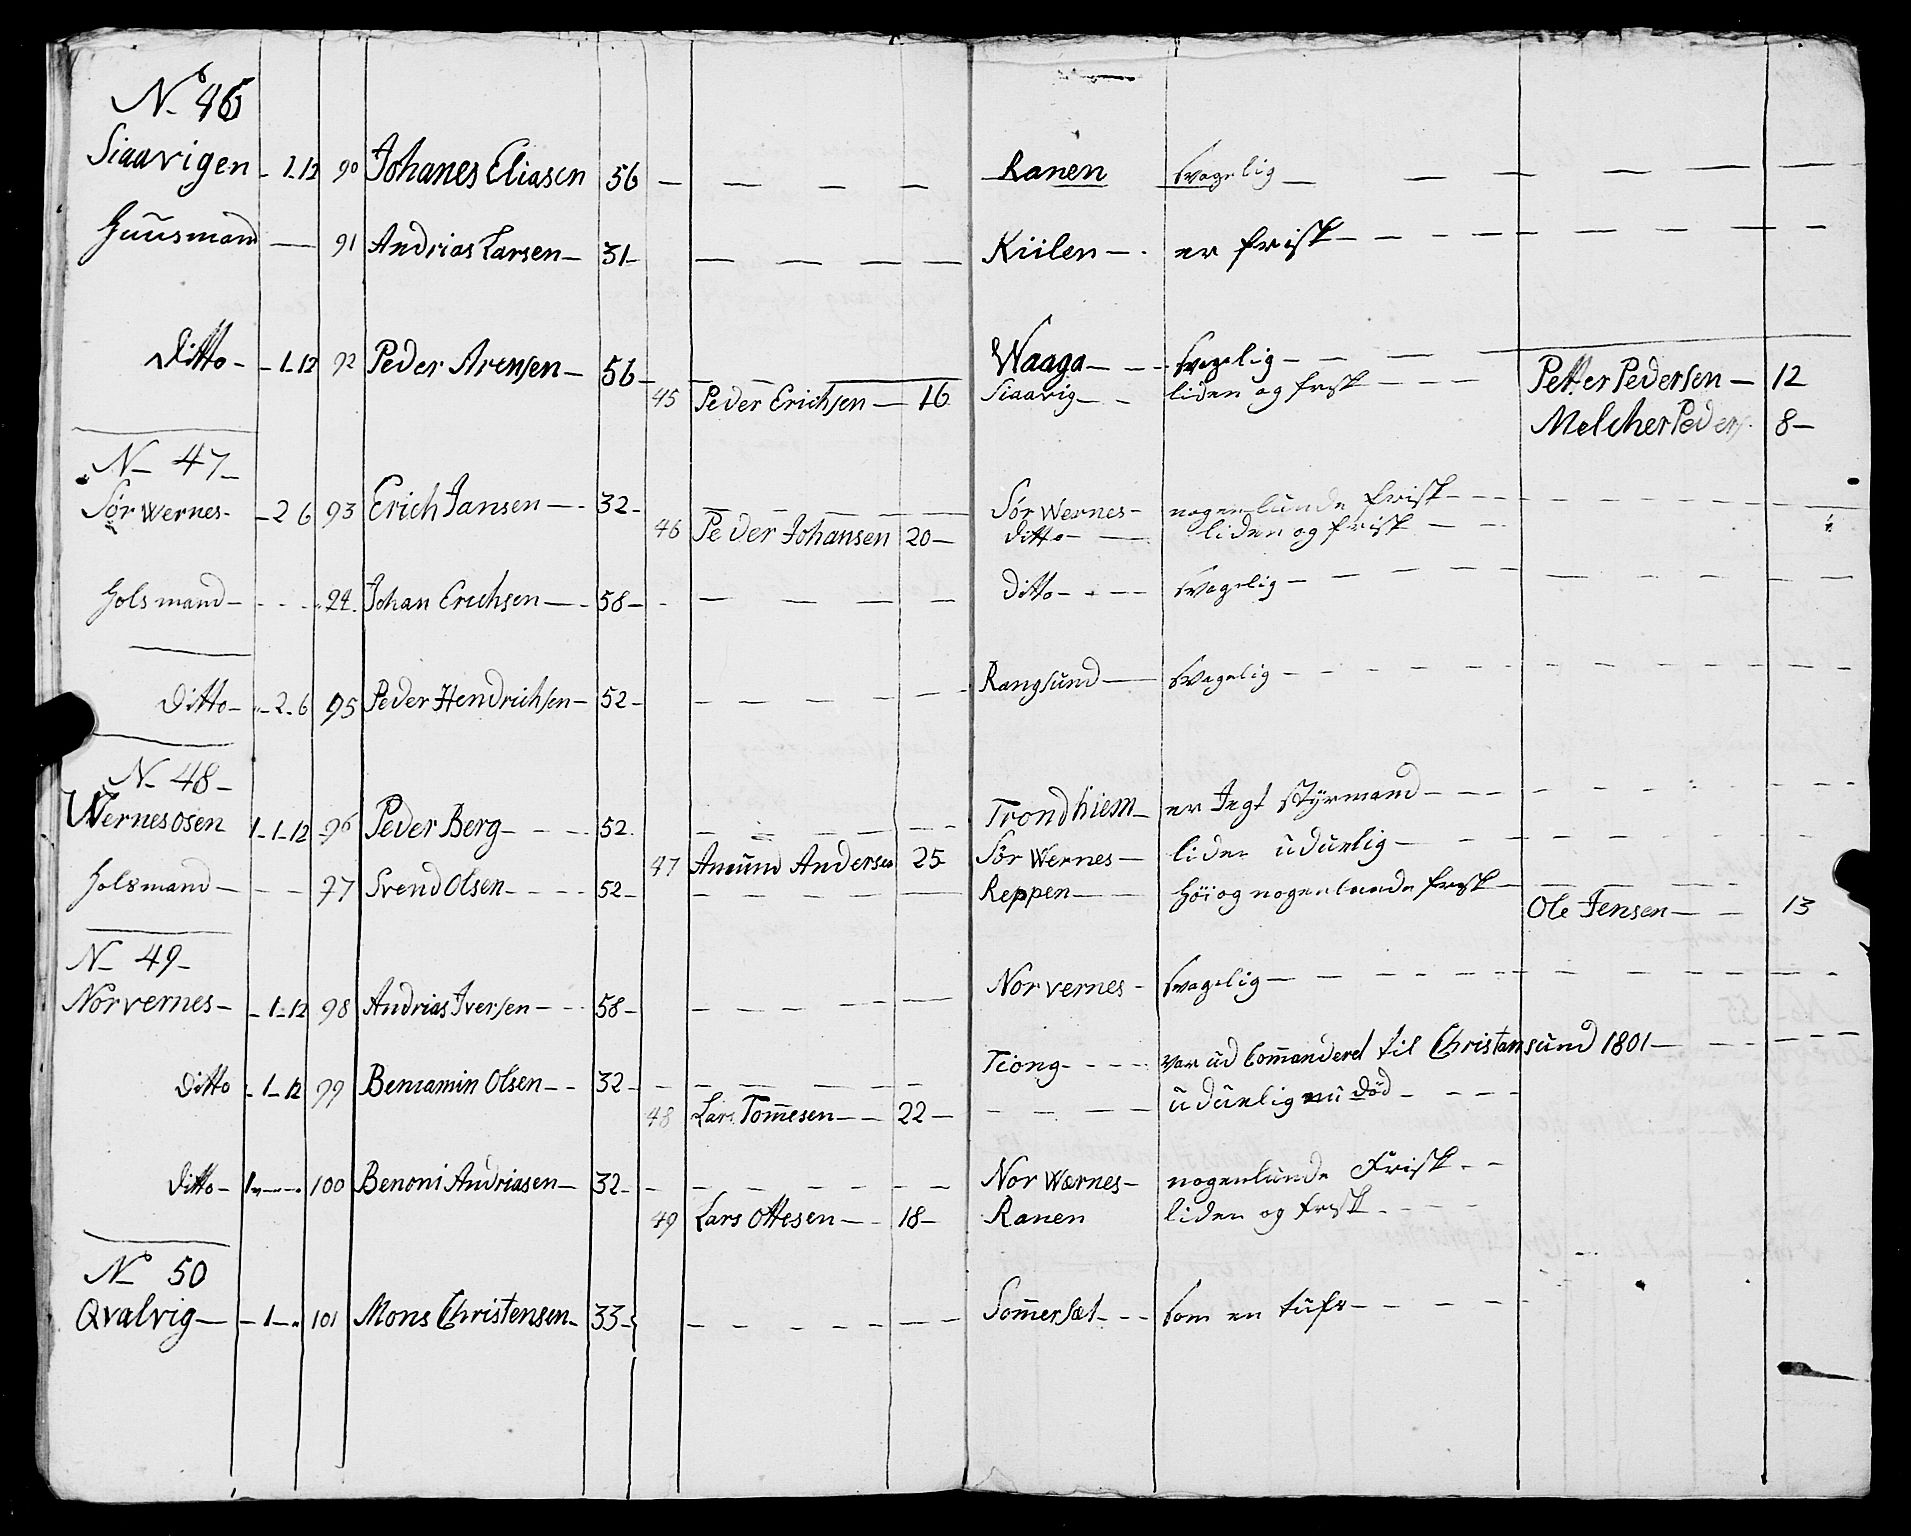 No 46
Siaavigen - 1-12 90 Johanes Eliasen 56 Ranen Svagelig
Huusmand 91 Andrias Larsen 31 Kiilen er frisk
Ditto 1-12 92 Peder Arensen 56 Waaga Svagelig
45 Peder Erichsen 16 Siaavig liden og frisk Petter Pedersen 12
Melcher Peders. 8
N 47
Sör Wernes 2 6 93 Erich Jansen 32 Sör Wernes nogenlunde frisk
46 Peder Johansen 20 Ditto liden og frisk
Holsmand 94 Johan Erichsen 58 Ditto Svagelig
Ditto 2-6 95 Peder Hendrichsen 52 Rangsund Svagelig
N 48
Wernesosen 1-1-12 96 Peder Berg 52 Trondhiem er Jegt Styrmand
47 Amund Andersen 25 Sör Wernes liden udüelig
Holsmand 97 Svend Olsen 52 Reppen Höi og nogenlunde frisk
Ole Jensen 13
N 49
Norvernes 1-12 98 Andrias Iversen 58 Norvernes Svagelig
Ditto 1-12 99 Beniamin Olsen 32 Tiong var ud Com̄anderet til Christansund 1801
48 Lars Tom̄esen 22 udüelig nu Död
Ditto 1 100 Benoni Andriasen 32 Nor Wærnes nogenlunde Frisk
49 Lars Ottesen 18 Ranen liden og frisk
No 50
Qvalvig 1 101 Mons Christensen 33 Som̄ersæt Som en